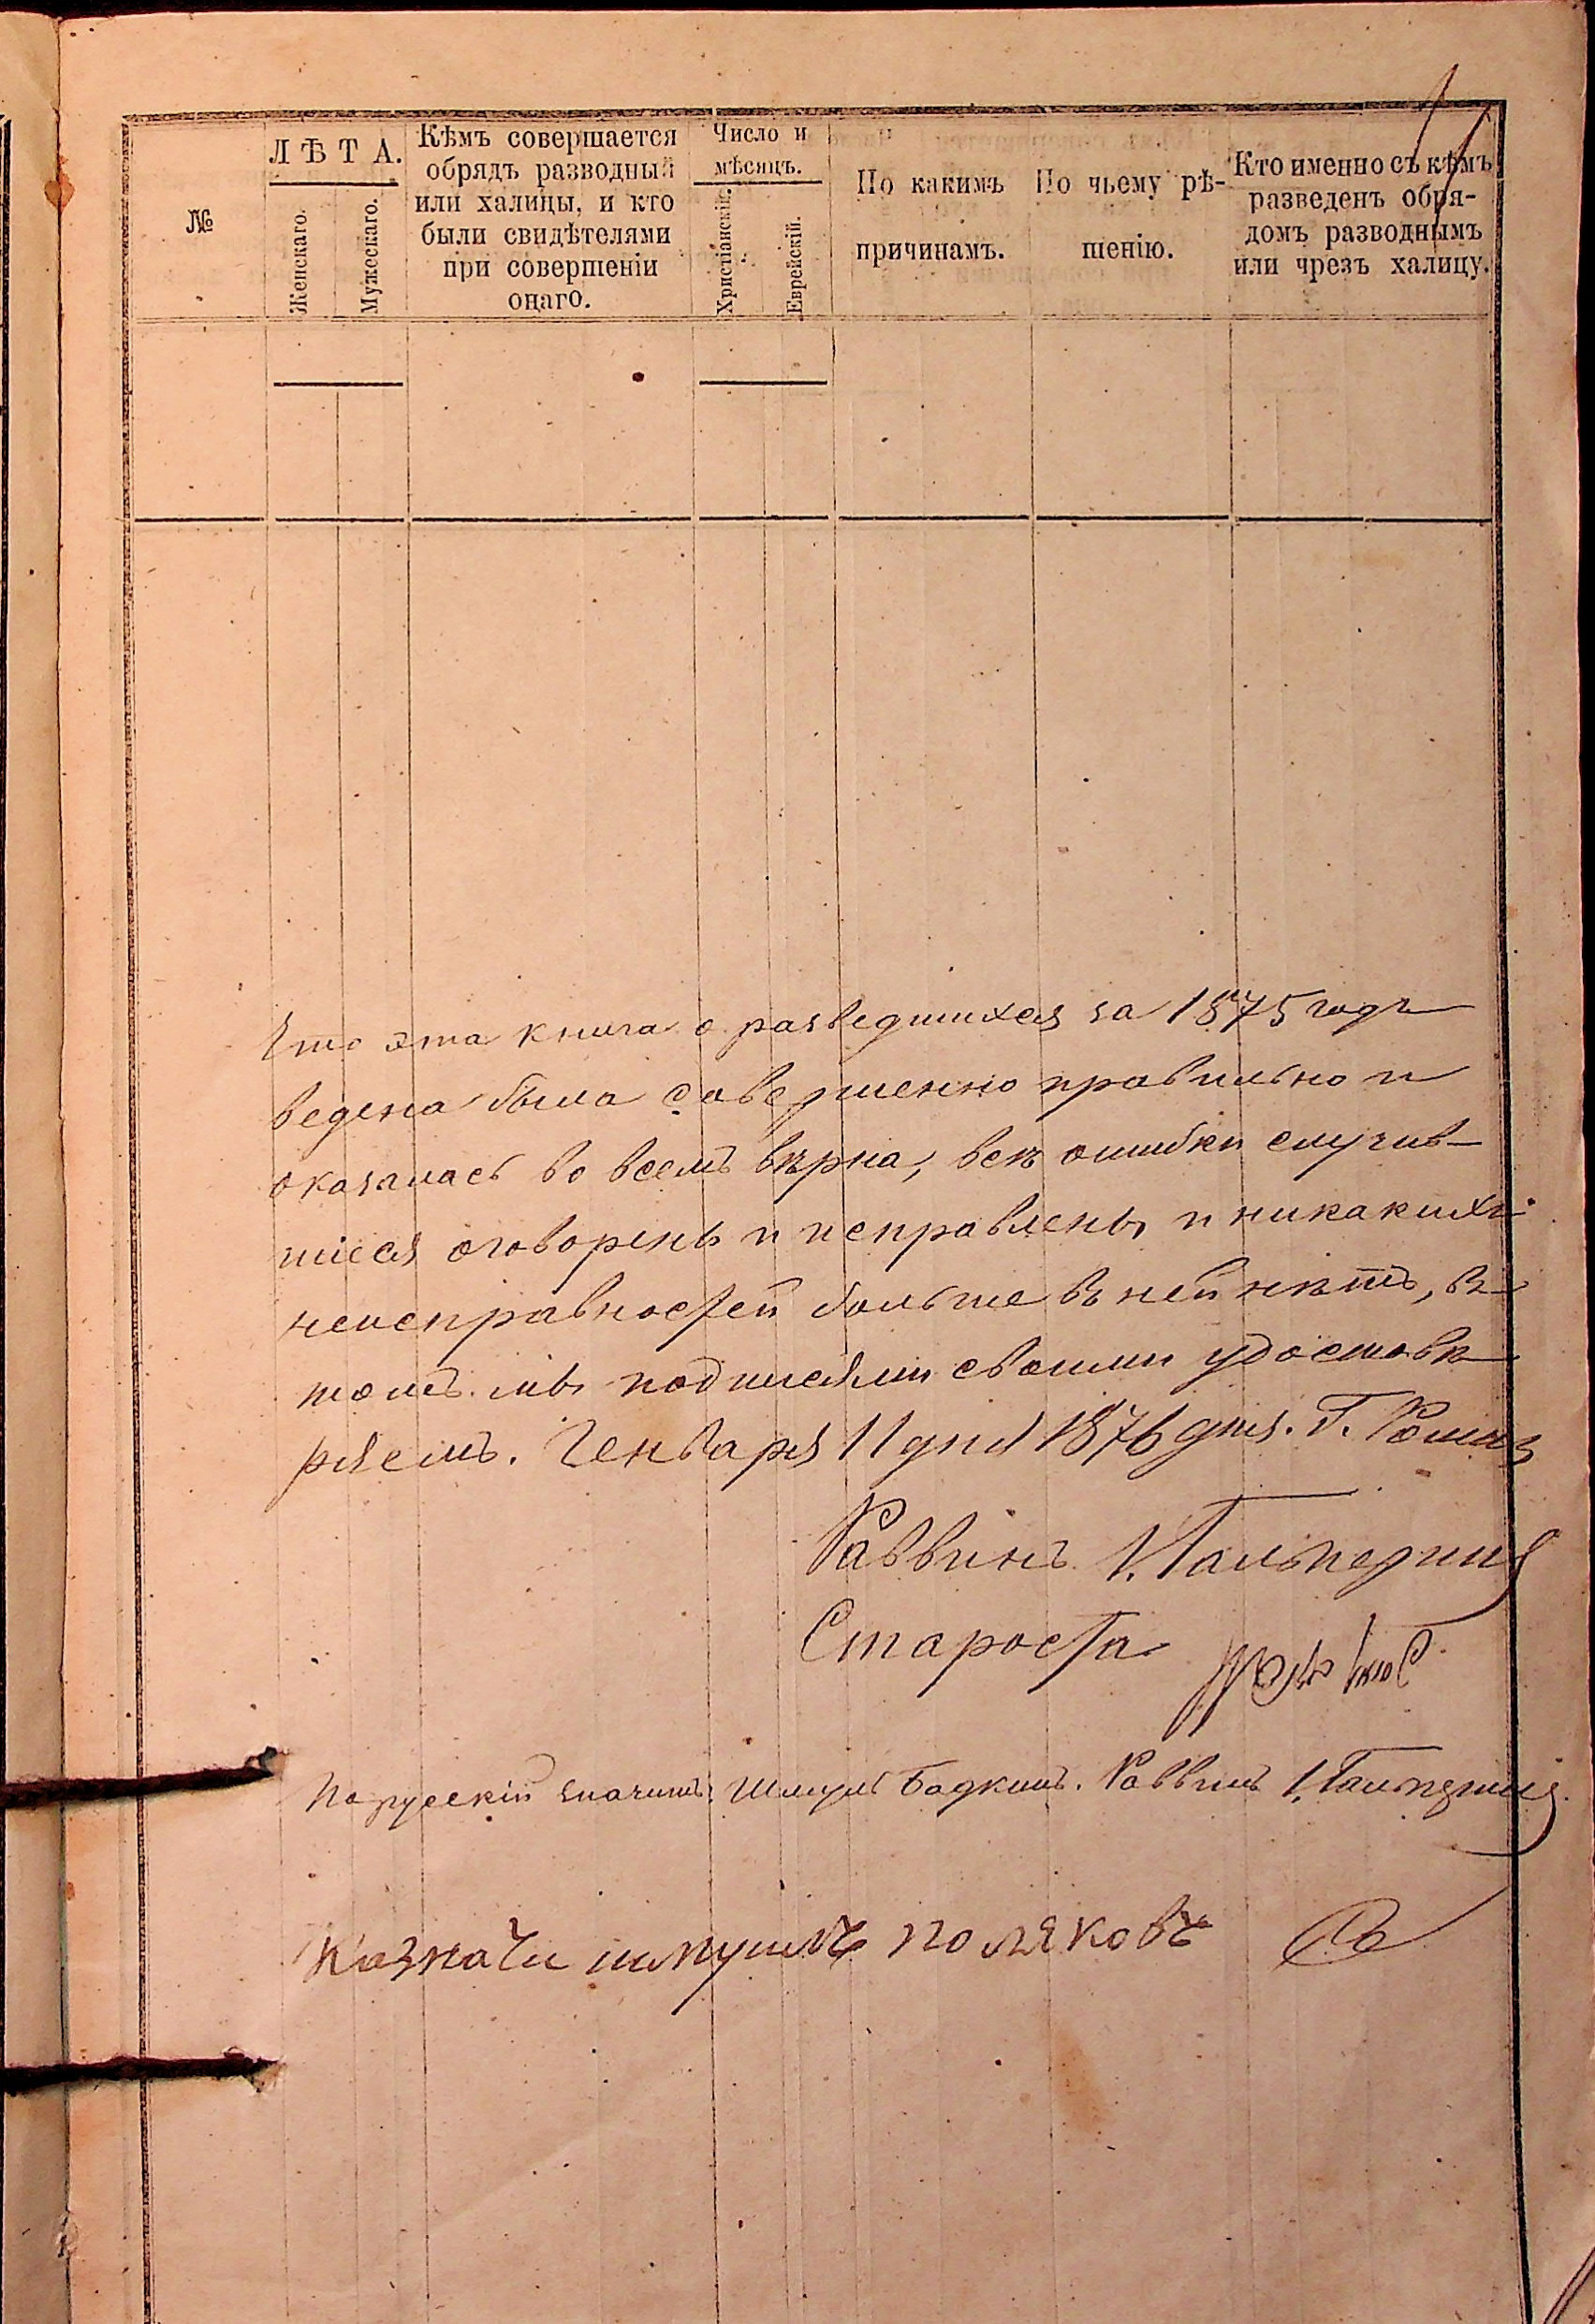 №
ЛѢТА.
Женскаго.
Мужескаго.
Кѣмъ совершается
обрядъ разводный
или халицы, и кто
были свидѣтелями
при совершеніи
онаго.
Число и
мѣсяцъ.
Христіанскій.
Еврейскій.
По какимъ
причинамъ.
По чьему рѣ-
шенію.
Кто именно съ кѣмъ
разведенъ обря-
домъ разводнымъ
или чрезъ халицу.
Что эта книга о разведшихся за 1875 годъ
ведена была совершенно правильно и
оказалась во всемъ вѣрна, всѣ ошибки случив-
шіеся оговорены и исправлены и никакихъ
неисправностей больше въ ней нѣтъ, въ
томъ мы подписями своими удостовѣ
ряемъ. Генваря 11 дня 1876 дня. Г. Ромны
Раввинъ І. Гальперинъ
Староста
По русскій значитъ: Шмуль Бадкинъ. Раввинъ І. Гальперинъ
Казначи поляковъ